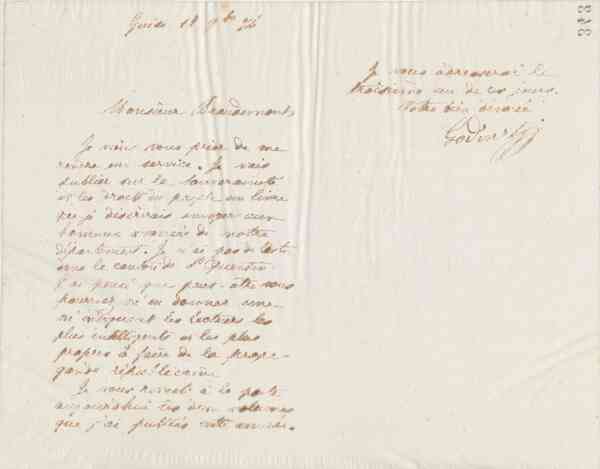 Guise 18 9bre 74
Monsieur Beaudemont
Je viens vous prier de me
rendre un service. Je vais
publier sur la Souveraineté
et les droits du peuple un livre
que je désirerais envoyer aux
hommes avancés de notre
département. Je n'ai pas de liste
pour le canton de St Quentin
J'ai pensé que peut-être vous
pourriez m'en donner une
m'indiquant les lecteurs les
plus intelligents et les plus
propres à faire de la propa-
gande républicaine
Je vous remets à la poste
aujourd'hui les deux volumes
que j'ai publiés cette année.
Je vous adresserai le
troisième un de ces jours.
Votre bien dévoué
Godin
378